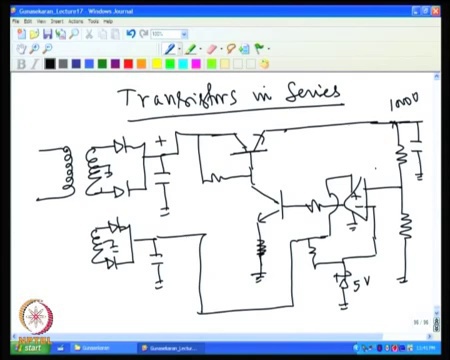 Gunasekaran_Lecture17 - Windows Journal
File Edit View Insert Actions Tools Help
100%
B I
Transistors in Series
1000V
+
+
-
+
5V
NPTEL
start
Gunasekaran
Gunasekaran_Lectur...